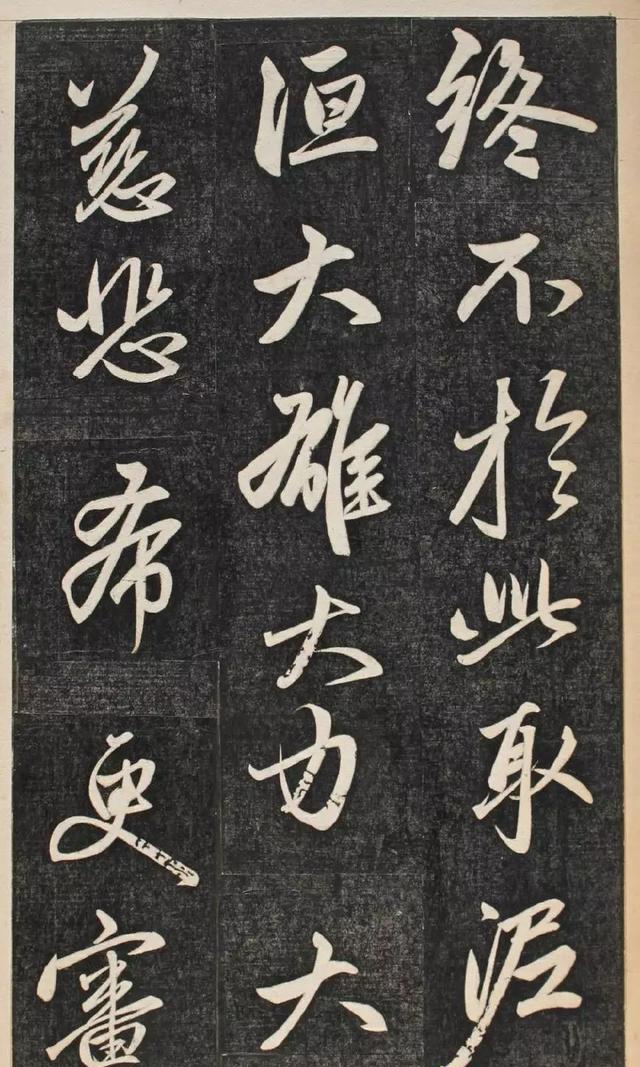 終不於此取泥
洹大雄大力大
慈悲希更審